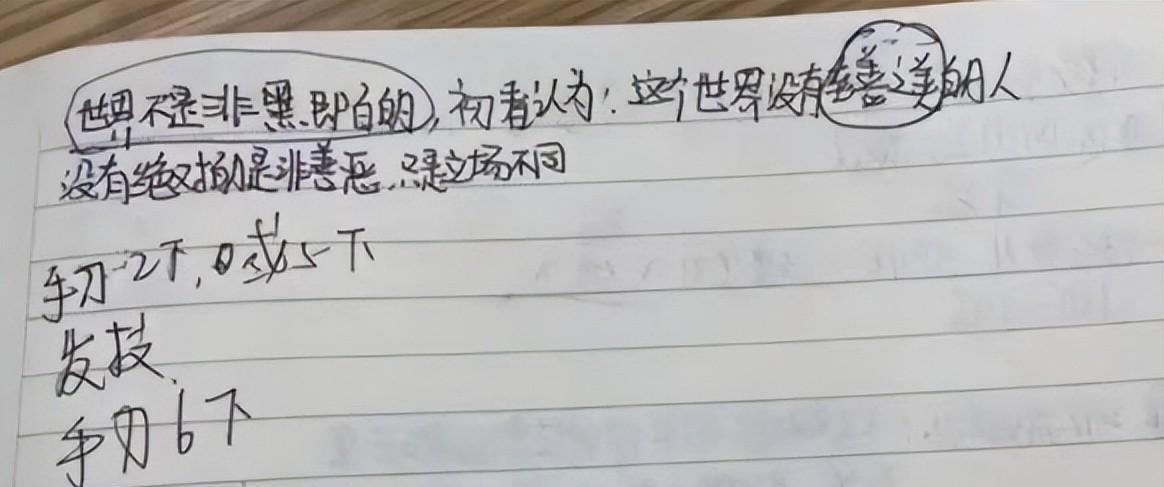 世界不是非黑即白的，初看认为：这个世界没有至善至美的人
没有绝对的是非善恶，只是立场不同
手刃2下，0或5下
发技
手刃6下